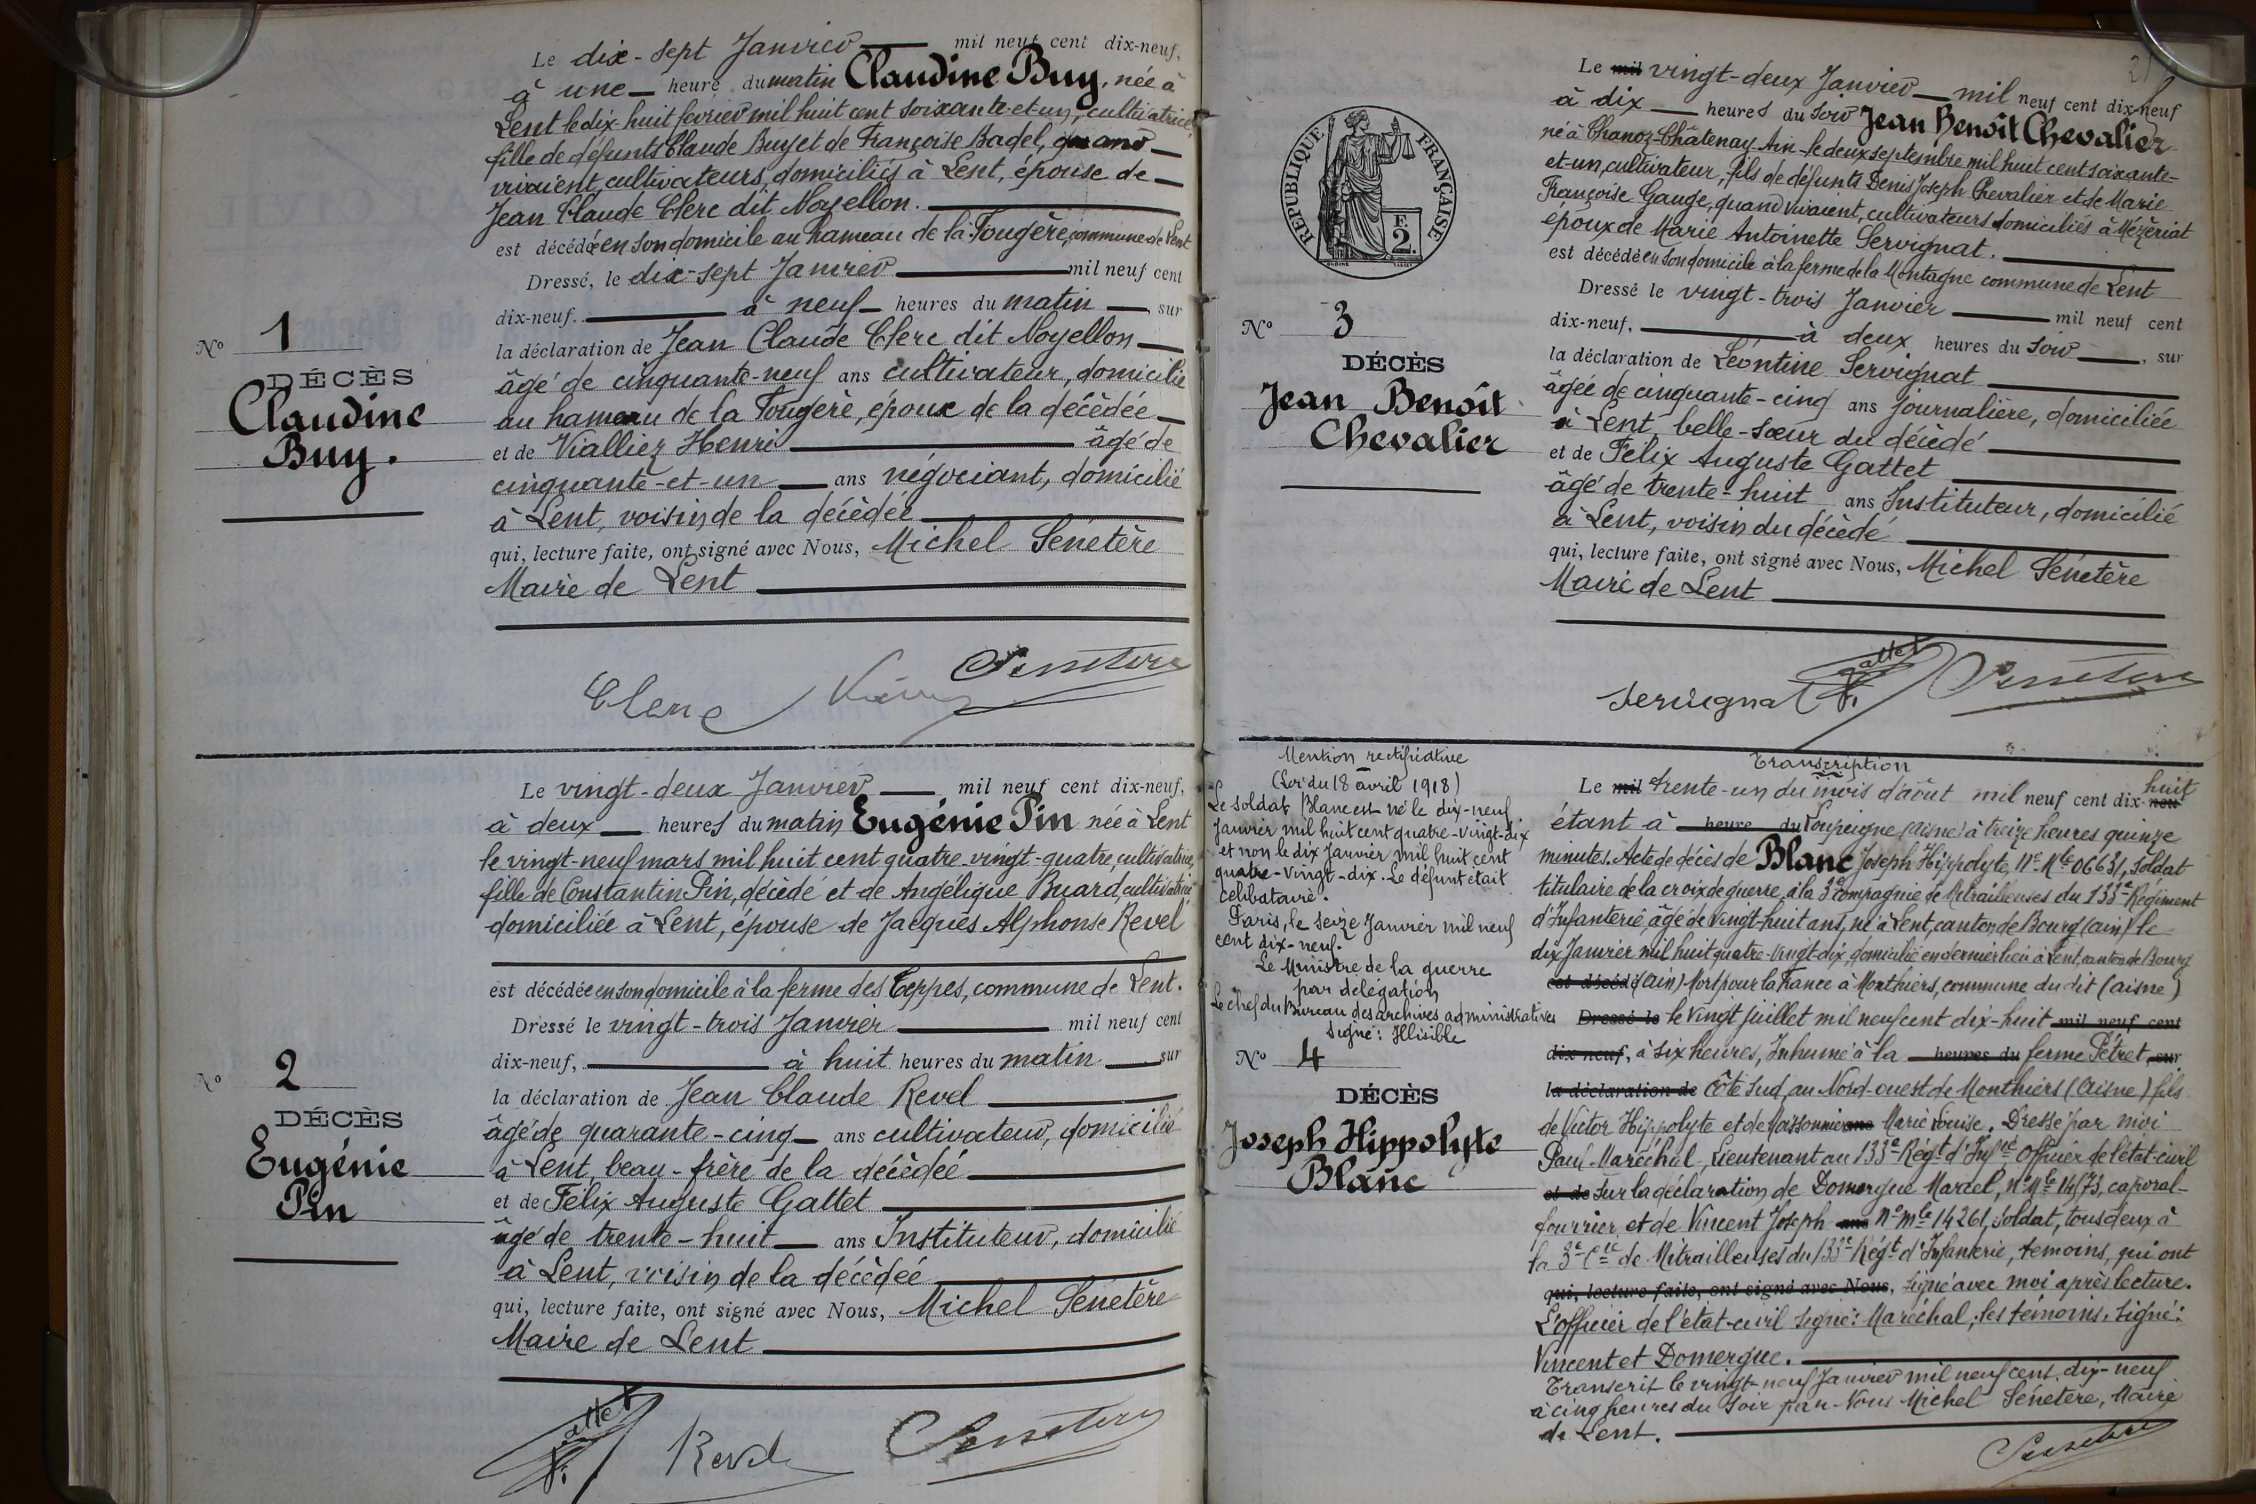 Le dix-sept Janvier mil neuf cent dix-neuf,
à une heure du matin Claudine Buy, née à
Lent le dix-huit février mil huit cent soixante-et-un, cultivatrice,
fille de défunts Claude Buy et de Françoise Badel, quand
vivaient, cultivateurs, domiciliés à Lent, épouse de
Jean Claude Clerc dit Noyellon.
est décédée en son domicile au hameau de la Fougère, commune de Lent
Dressé, le dix-sept Janvier mil neuf cent
dix-neuf. à neuf heures du matin, sur
la déclaration de Jean Claude Clerc dit Noyellon
âgé de cinquante-neuf ans cultivateur, domicilié
au hameau de la Fougère, époux de la décédée
et de Vialliez Henri âgé de
cinquante-et-un ans négociant, domicilié
à Lent, voisin de la décédée
qui, lecture faite, ont signé avec Nous, Michel Sénetère
Maire de Lent
N° 1
DÉCÈS
Claudine
Buy.
Clerc Sénetère
Le vingt-deux Janvier mil neuf cent dix-neuf,
à deux heures du matin Eugénie Pin née à Lent
le vingt-neuf mars mil huit cent quatre-vingt-quatre, cultivatrice,
fille de Constantin Pin, décédé et de Angélique Buard, cultivatrice
domiciliée à Lent, épouse de Jacques Alphonse Revel
est décédée en son domicile à la ferme des Teppes, commune de Lent.
Dressé le vingt-trois Janvier mil neuf cent
dix-neuf, à huit heures du matin sur
la déclaration de Jean Claude Revel
âgé de quarante-cinq ans cultivateur, domicilié
à Lent, beau-frère de la décédée
et de Félix Auguste Gattet
âgé de trente-huit ans Instituteur, domicilié
à Lent, voisin de la décédée
qui, lecture faite, ont signé avec Nous, Michel Sénetère
Maire de Lent
N° 2
DÉCÈS
Eugénie
Pin
Gattet Revel Sénetère
21
Le mil vingt-deux Janvier mil neuf cent dix-neuf
à dix heures du soir Jean Benoît Chevalier
né à Chanoz-Châtenay Ain le deux septembre mil huit cent soixante-
et-un, cultivateur, fils de défunts Denis Joseph Chevalier et de Marie
Françoise Gauge, quand vivaient, cultivateurs domiciliés à Mézériat
époux de Marie Antoinette Servignat.
est décédé en son domicile à la ferme de la Montagne commune de Lent
Dressé le vingt-trois Janvier mil neuf cent
dix-neuf, à deux heures du soir, sur
la déclaration de Léontine Servignat
âgée de cinquante-cinq ans journalière, domiciliée
à Lent, belle-sœur du décédé
et de Félix Auguste Gattet
âgé de trente-huit ans Instituteur, domicilié
à Lent, voisin du décédé
qui, lecture faite, ont signé avec Nous, Michel Sénetère
Maire de Lent
RÉPUBLIQUE FRANÇAISE
F.
2.
N° 3
DÉCÈS
Jean Benoît
Chevalier
Servignat Gattet Sénetère
Mention rectificative
(Loi du 18 avril 1918)
Le soldat Blanc est né le dix-neuf
Janvier mil huit cent quatre-vingt-dix
et non le dix Janvier mil huit cent
quatre-vingt-dix. Le défunt était
célibataire.
Paris, le seize Janvier mil neuf
cent dix-neuf.
Le Ministre de la guerre
par délégation
Le chef du Bureau des archives administratives
Signé: Illisible
N° 4
DÉCÈS
Joseph Hippolyte
Blanc
Transcription
Le mil trente-un du mois d'août mil neuf cent dix-neuf huit
étant à heure du Loupeigne (aisne) à treize heures quinze
minutes. Acte de décès de Blanc Joseph Hippolyte, N° Mle 06631, Soldat
titulaire de la croix de guerre, à la 3e Compagnie de Mitrailleuses du 133e Régiment
d'Infanterie, âgé de vingt-huit ans, né à Lent, canton de Bourg (ain) le
dix Janvier mil huit quatre-vingt-dix, domicilié en dernier lieu à Lent, canton de Bourg
est décédé (ain) Mort pour la France à Monthiers, commune du dit (aisne)
Dressé le le vingt juillet mil neuf cent dix-huit mil neuf cent
dix-neuf, à six heures, Inhumé à la heures du ferme Pétret, sur
la déclaration de Côté Sud au Nord-ouest de Monthiers (Aisne) fils
de Victor Hippolyte et de Massonnie ans Marie Louise. Dressé par moi
Paul Maréchal, Lieutenant au 133e Régt d'Infie Officier de l'état-civil
et de Sur la déclaration de Domergue Marcel, n° Mle 14573, caporal-
fourrier, et de Vincent Joseph ans n° mle 14261, soldat, tous deux à
la 3e Cie de Mitrailleuses du 133e Régt d'Infanterie, témoins, qui ont
qui, lecture faite, ont signé avec Nous, signé avec moi après lecture.
L'officier de l'état-civil signé: Maréchal; les témoins, signé:
Vincent et Domergue.
Transcrit le vingt-neuf Janvier mil neuf cent dix-neuf
à cinq heures du soir par Nous Michel Sénetère, Maire
de Lent.
Sénetère